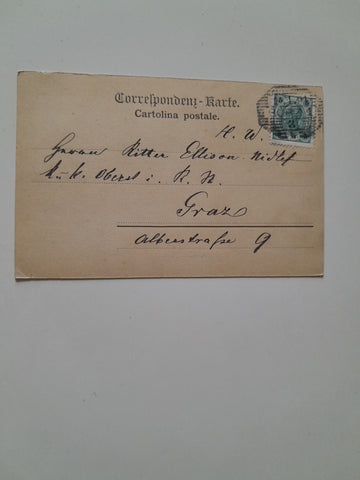 Correspondenz-Karte.
Cartolina postale.
H. W.
Herrn Ritter Ellison-Nidlef
K. u. K. Oberst i. R. N.
Graz
Alberstraße 9